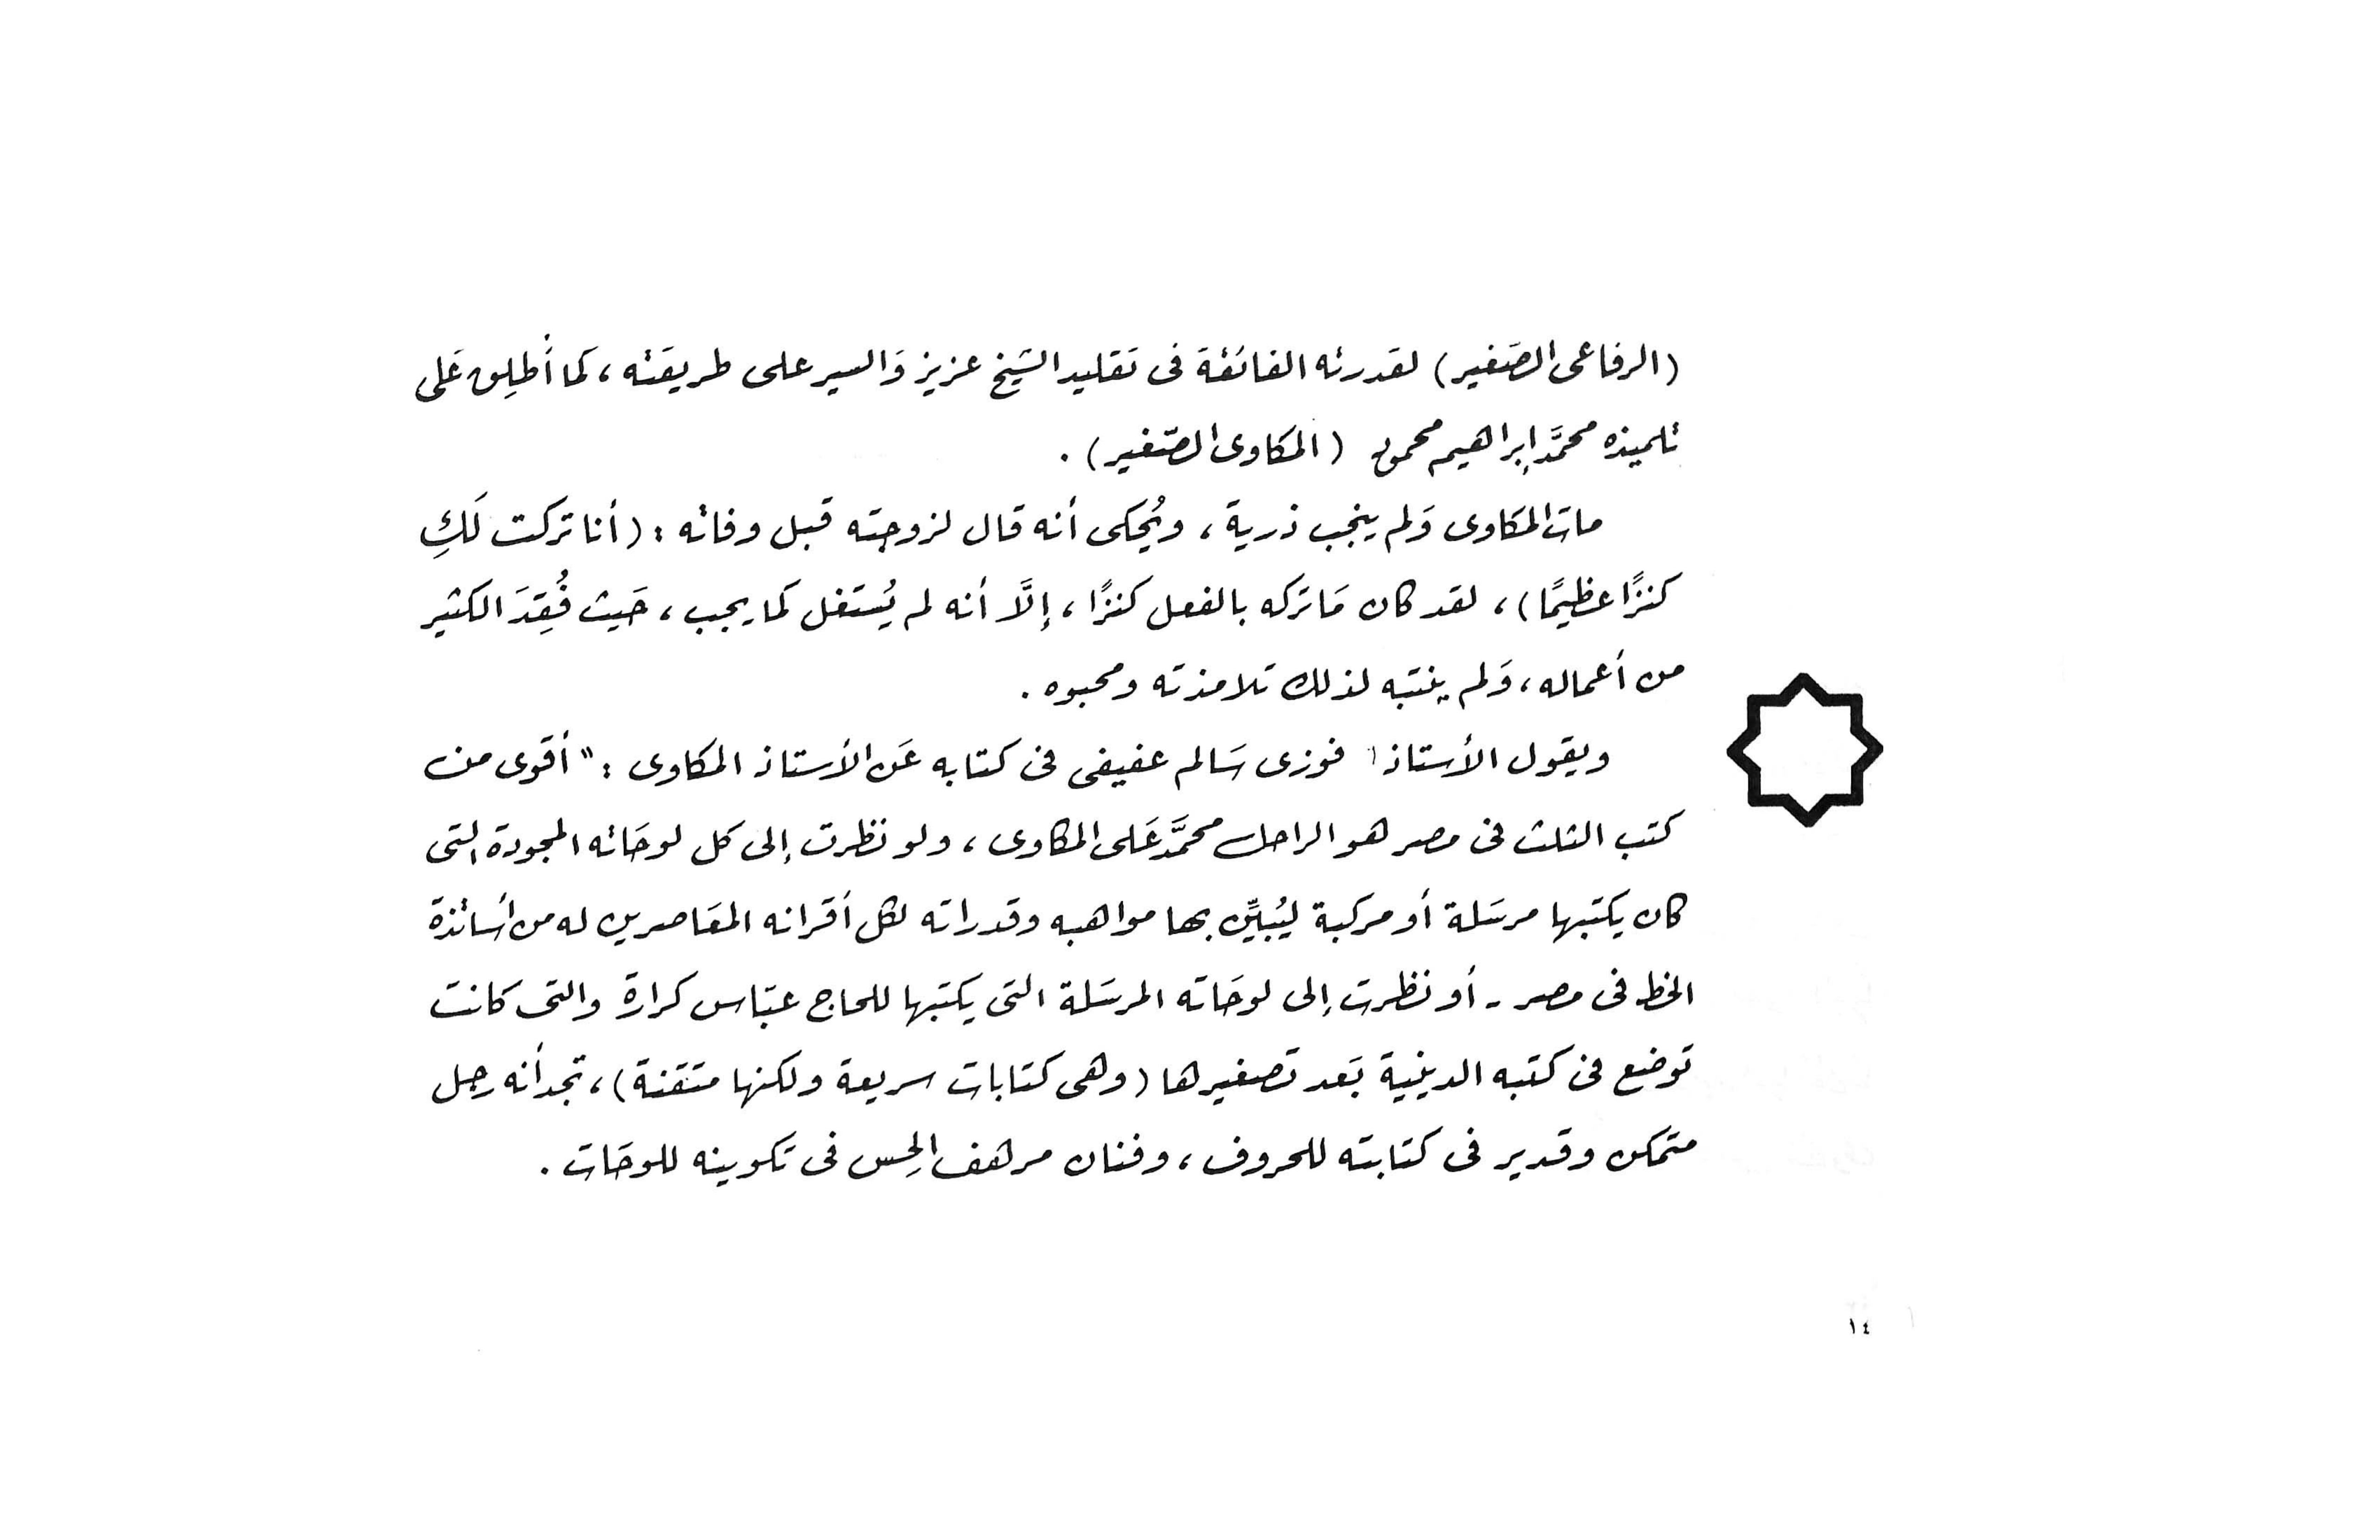 (الرفاعى الصَغير) لقدرته الفائقة فى تَقليد الشيخ عزيز وَالسير على طريقَته ، كَما أُطلِق عَلى
تلميذه محمَّد إبراهيم محمود (المكاوى الصّغير) .
مات المكاوى وَلم ينجب ذرية ، ويُحكى أنه قال لزوجته قبل وفاته : (أنا تركت لَكِ
كنزًا عظيمًا) ، لقد كان مَا تركه بالفعل كنزًا ، إلَّا أنه لم يُستَغل كما يجب ، حَيث فُقِدَ الكثير
من أعماله ، وَلم ينتبه لذلك تلامذته ومحبوه .
ويقول الأستاذ فوزى سَالم عفيفى فى كتابه عَن الأستاذ المكاوى : " أقوى من
كتب الثلث فى مصر هو الراحل محمَّد عَلى المكاوى ، ولو نظرت إلى كل لوحَاته المجودة التى
كان يكتبها مرسَلة أو مركبة ليُبيِّن بها مواهبه وقدراته لكل أقرانه المعَاصرين له من أسَاتذة
الخط فى مصر - أو نظرت إلى لوحَاته المرسَلة التى يكتبها للحاج عبّاس كرارة والتى كانت
توضع فى كتبه الدينية بَعد تصغيرها (وهى كتابات سريعة ولكنها متقنة) ، تجد أنه رجل
متمكن وقدير فى كتابته للحروف ، وفنان مرهف الحِس فى تكوينه للوحَات .
١٤